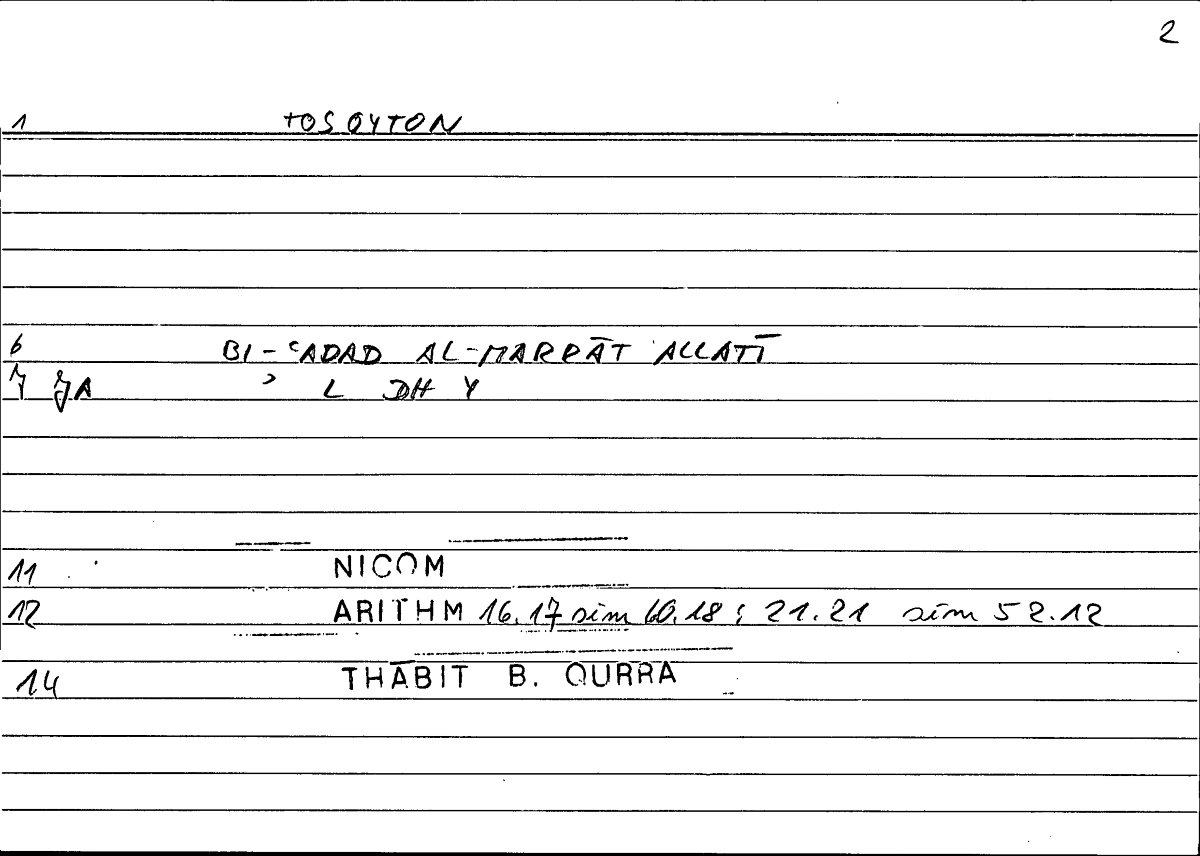 2
1 TOSOYTON
6 BI-ʿADAD AL-MARRĀT ALLATĪ
7 7A ʾ L DH Y
11 NICOM
12 ARITHM 16.17 sim 60.18 ; 21.21 sim 52.12
14 THĀBIT B. QURRA